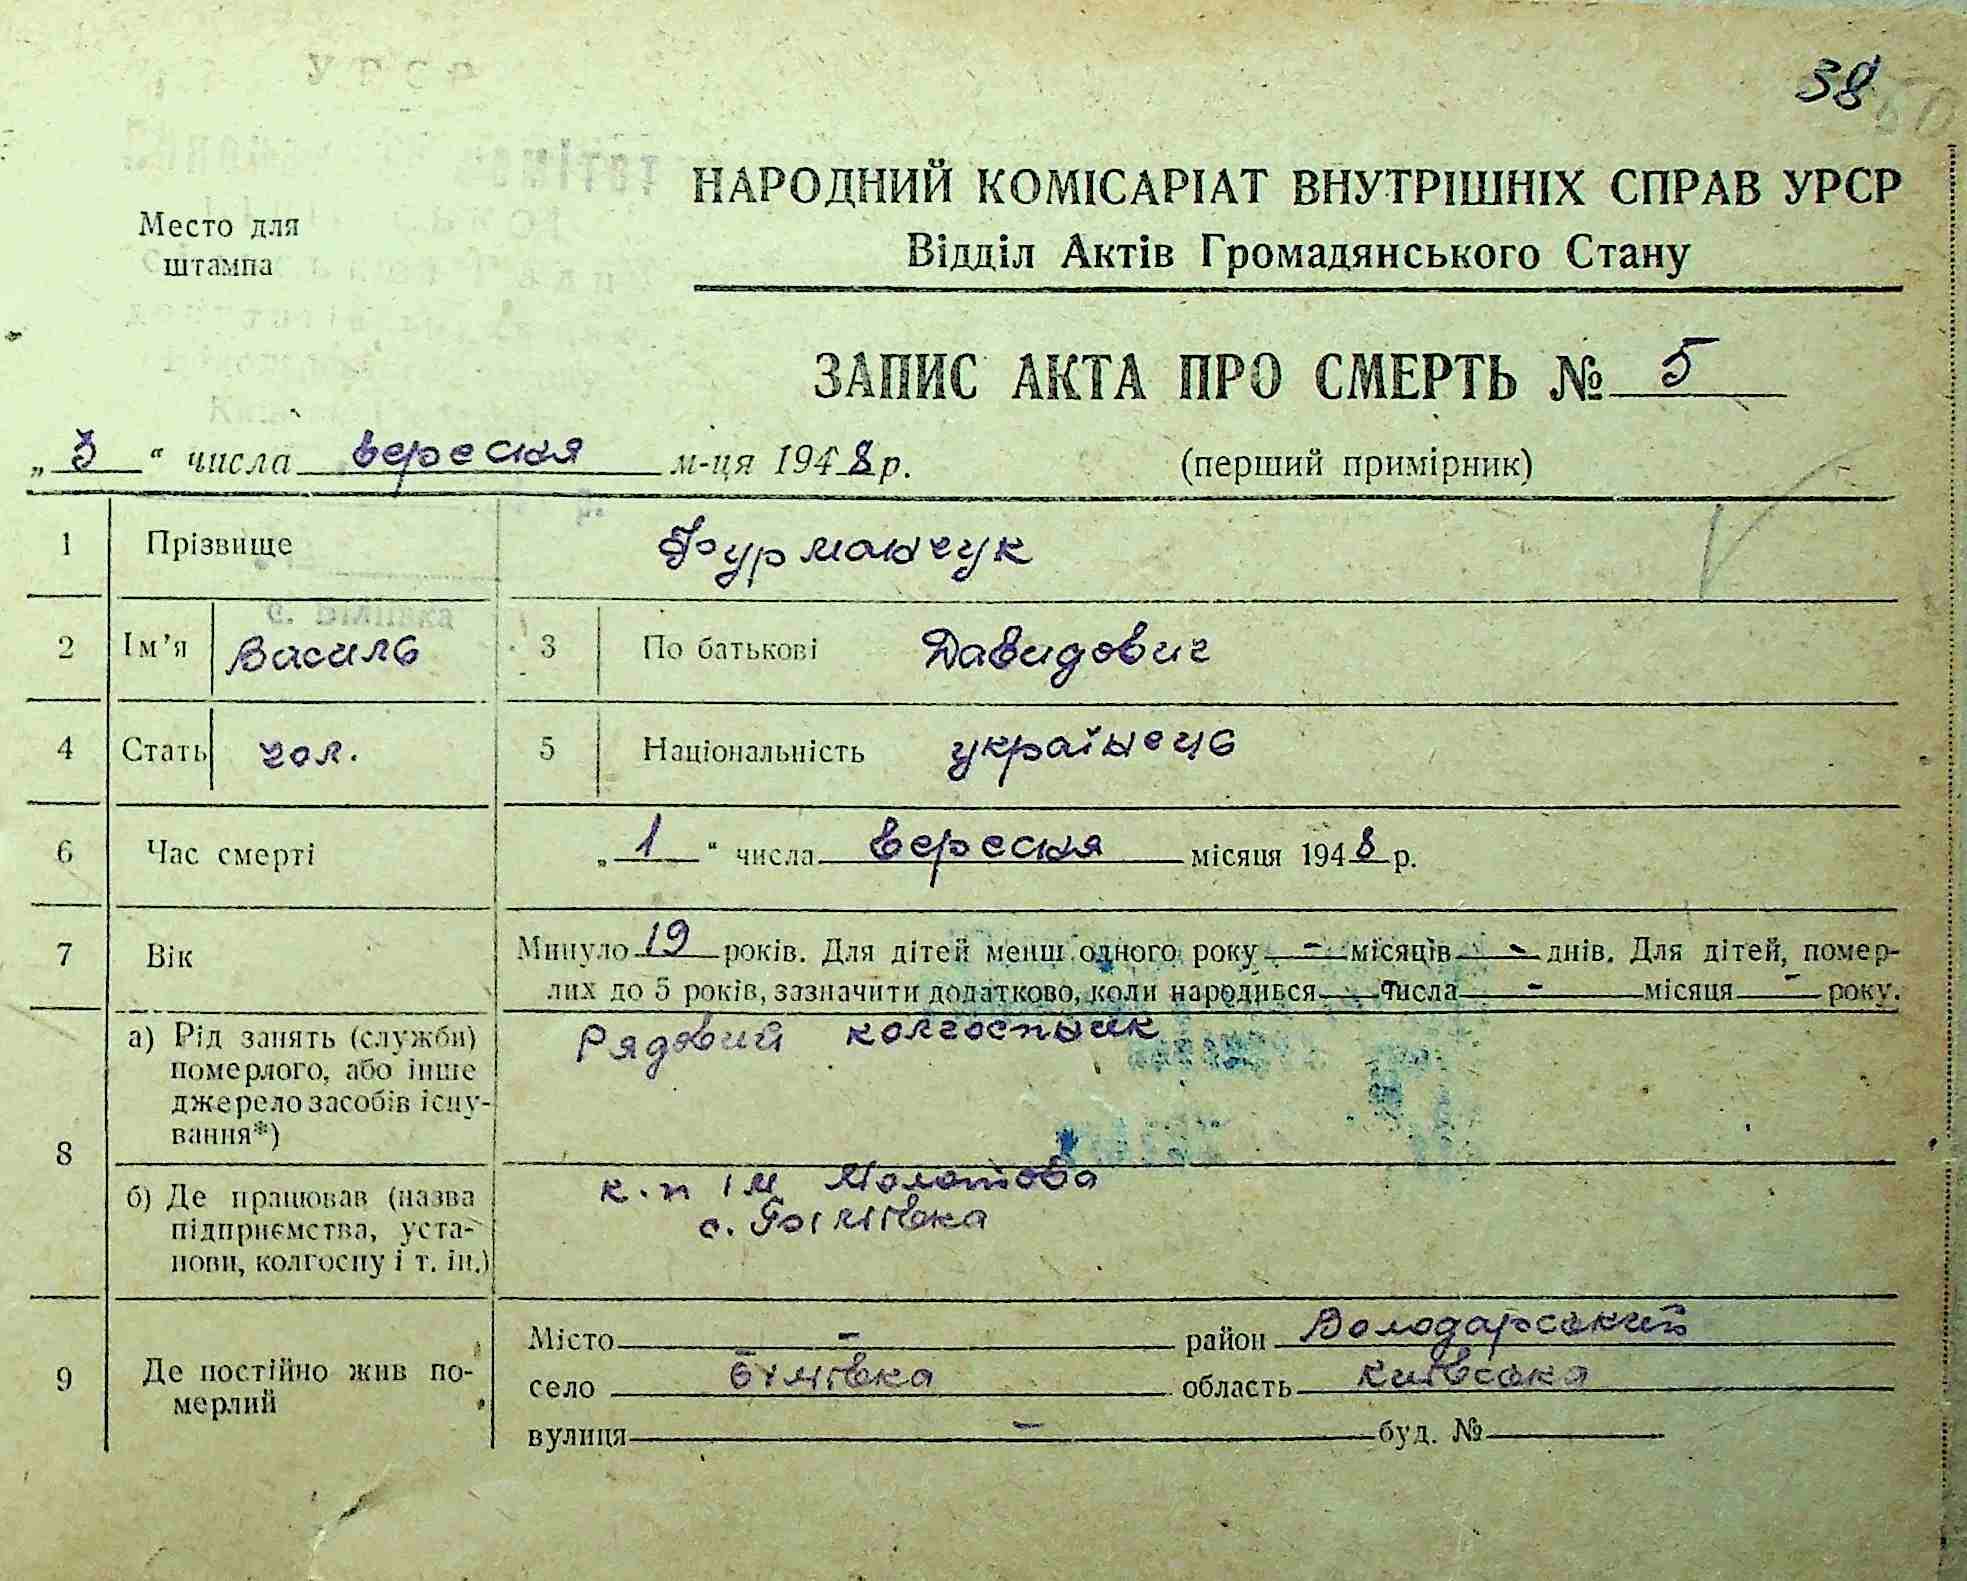 38
НАРОДНИЙ КОМІСАРІАТ ВНУТРІШНІХ СПРАВ УРСР
Відділ Актів Громадянського Стану
Место для
штампа
ЗАПИС АКТА ПРО СМЕРТЬ № 5
„ 3 “ числа вересня м-ця 1948 р. (перший примірник)
1 Прізвище Фурманчук
2 Ім'я Василь 3 По батькові Давидович
4 Стать чол. 5 Національність українець
6 Час смерті „ 1 “ числа вересня місяця 1948 р.
7 Вік Минуло 19 років. Для дітей менш одного року - місяців - днів. Для дітей, помер-
лих до 5 років, зазначити додатково, коли народився — числа - місяця - року.
8 а) Рід занять (служби) Рядовий колгоспник
померлого, або інше
джерело засобів існу-
вання*)
б) Де працював (назва к.п ім Молотова
підприємства, уста- с. Біліївка
нови, колгоспу і т. ін.)
9 Де постійно жив по-
мерлий
Місто - район Володарський
село Біліївка область Київська
вулиця - буд. №